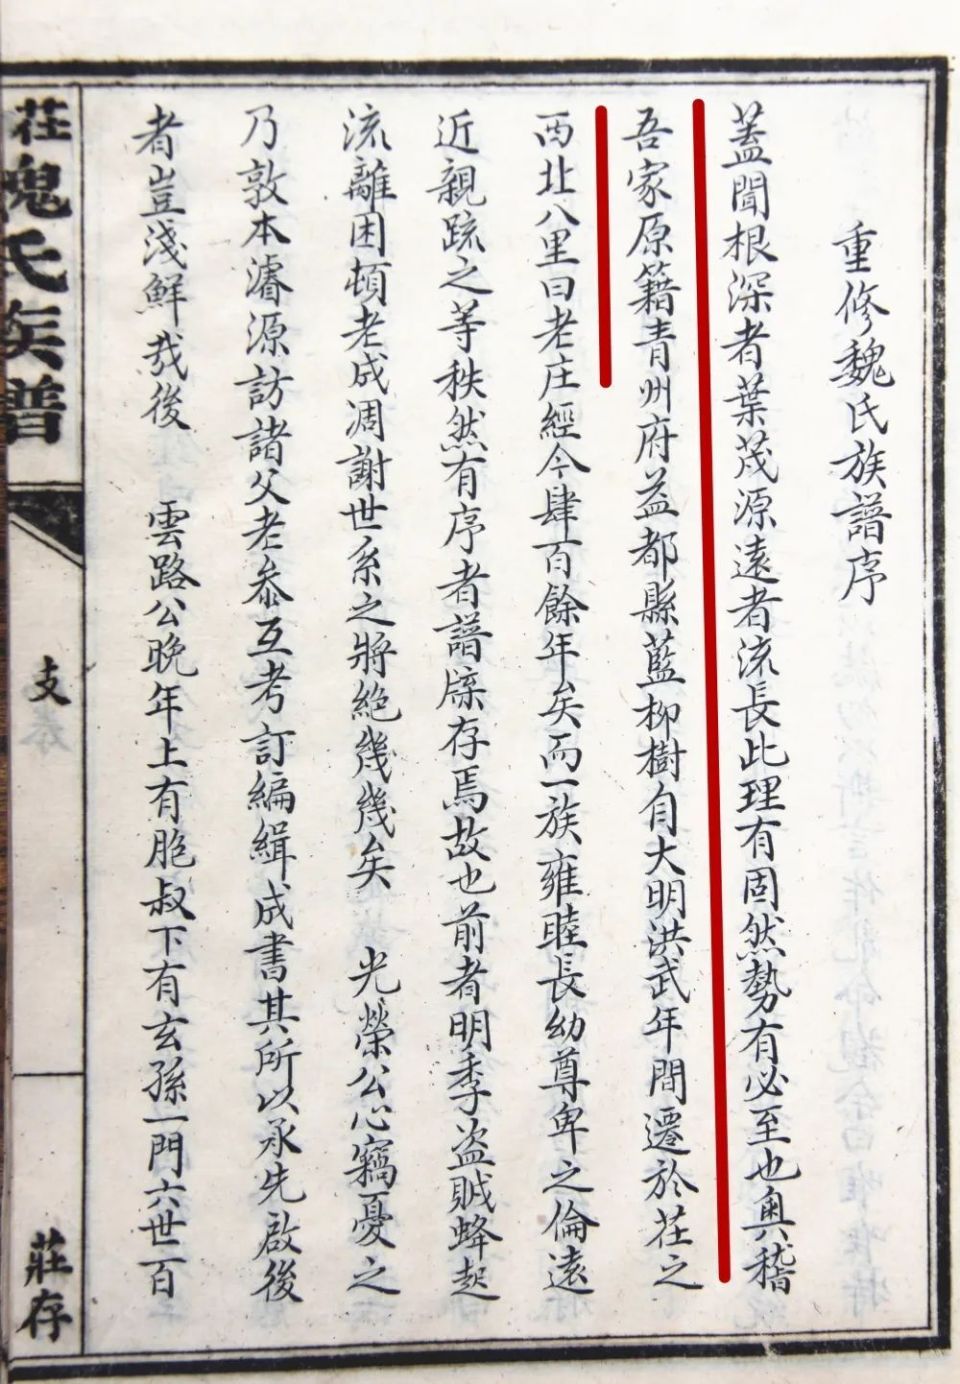 重修魏氏族譜序
蓋聞根深者葉茂源遠者流長此理有固然勢有必至也奧稽
吾家原籍青州府益都縣藍柳樹自大明洪武年間遷於茌之
西北八里曰老庄經今肆百餘年矣而一族雍睦長幼尊卑之倫遠
近親疏之等秩然有序者譜牒存焉故也前者明季盗賊蜂起
流離困頓老成凋謝世系之將絕幾幾矣 光榮公心竊憂之
乃敦本濬源訪諸父老叅互考訂編緝成書其所以承先啟後
者豈淺鮮哉後 雲路公晚年上有胞叔下有玄孫一門六世百
茌魏氏族譜
支
莊存